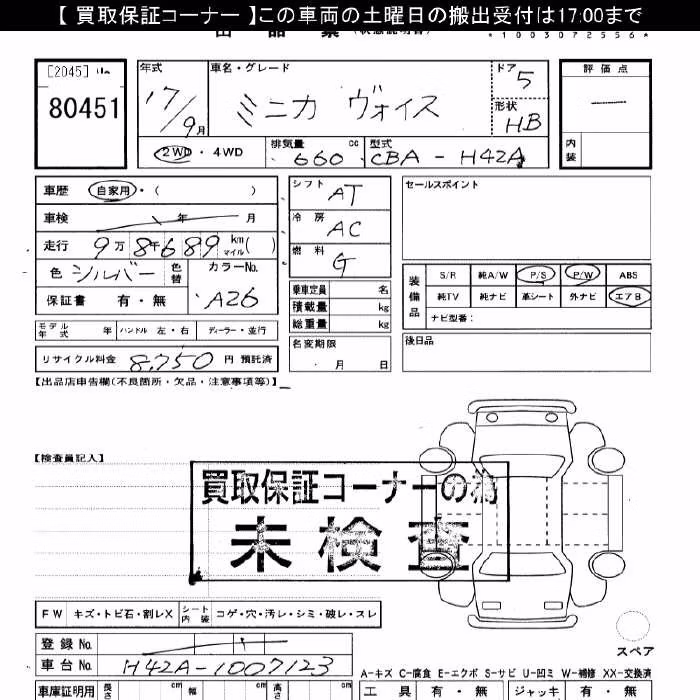 【 買取保証コーナー 】この車両の土曜日の搬出受付は17:00まで
*1003072556*
[2045]
80451
年式
17/9月
車名・グレード
ミニカ ヴォイス
ドア 5
形状 HB
評価点
内装
2WD ・ 4WD
排気量 660 cc
型式 CBA - H42A
車歴 自家用・( )
車検 年 月
走行 9万8千689 km マイル( )
色 シルバー 色替
カラーNo. A26
保証書 有・無
シフト AT
冷房 AC
燃料 G
乗車定員 名
積載量 kg
総重量 kg
セールスポイント
装備品
S/R 純A/W P/S P/W ABS
純TV 純ナビ 革シート 外ナビ エアB
ナビ型番：
モデル年式 年 ハンドル 左・右 ディーラー・並行
リサイクル料金 8,750 円 預託済
名変期限 月 日
後日品
【出品店申告欄(不良箇所・欠品・注意事項等)】
【検査員記入】
買取保証コーナーの為
未検査
FW キズ・トビ石・割レX シート内装 コゲ・穴・汚レ・シミ・破レ・スレ
スペア
登録 No.
車台 No. H42A-1007123
A-キズ C-腐食 E-エクボ S-サビ U-凹ミ W-補修 XX-交換済
車庫証明用 長さ cm 幅 cm 高さ cm
工具 有・無 ジャッキ 有・無